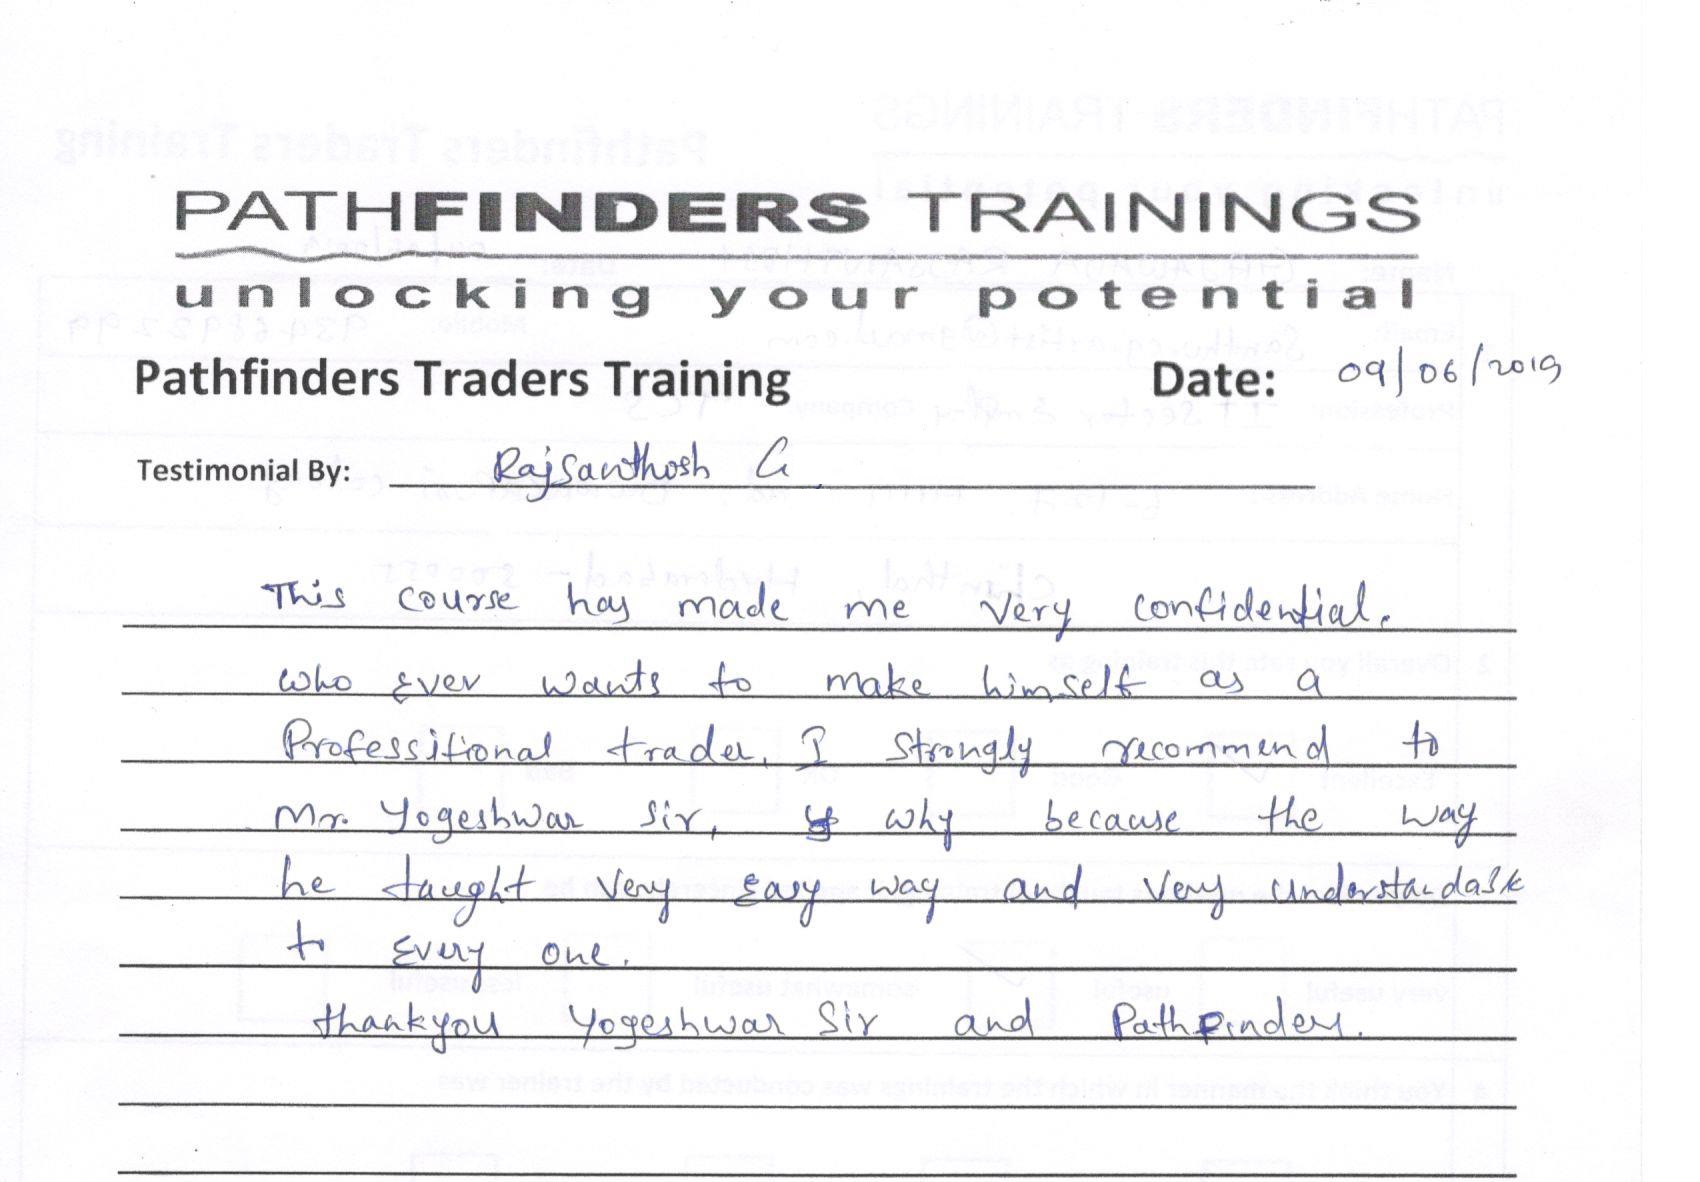 PATHFINDERS TRAININGS
unlocking your potential
Pathfinders Traders Training Date: 09/06/2019
Testimonial By: RajSanthosh G
This course has made me very confidential.
who ever wants to make himself as a
Professitional trader, I strongly recommend to
Mr. Yogeshwar Sir, why because the way
he taught very easy way and very understandable
to every one.
thankyou Yogeshwar Sir and Pathfinders.